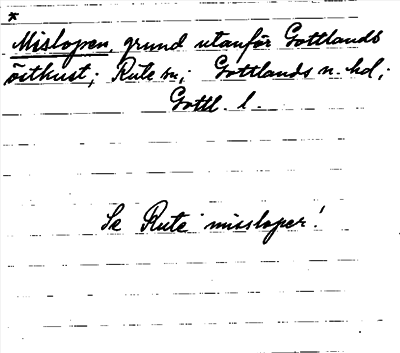 *
Mislopen, grund utanför Gottlands
östkust; Rute sn, Gottlands n. hd;
Gottl. l.
Se Rute missloper!